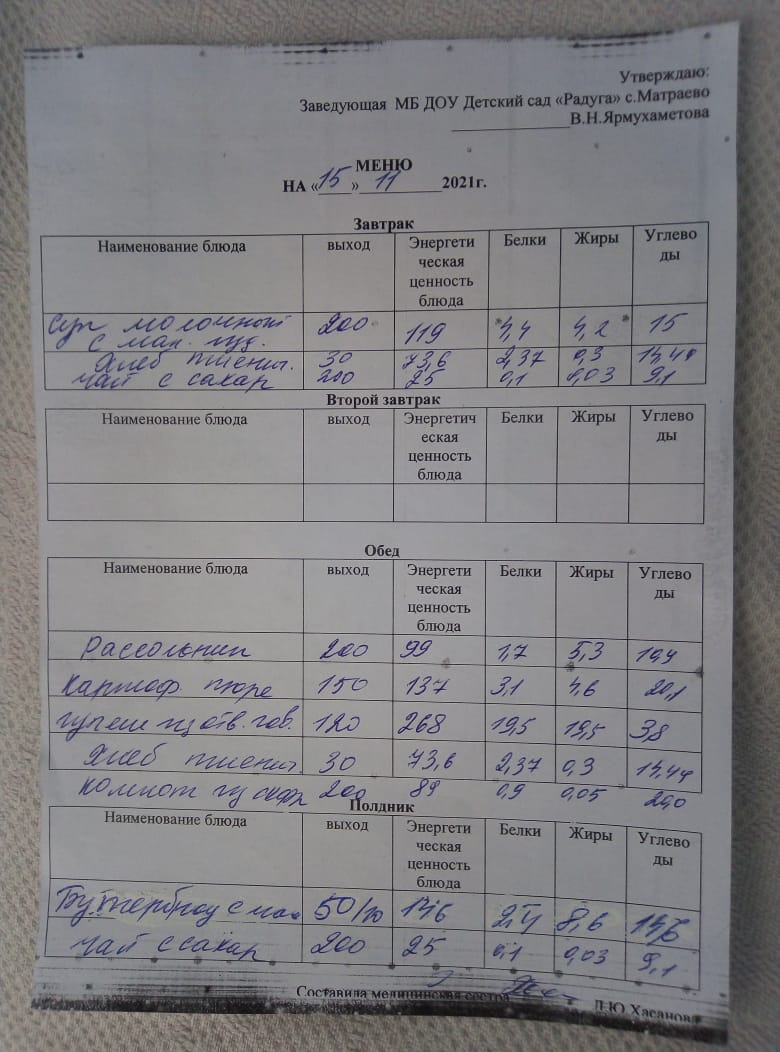 Утверждаю:
Заведующая МБ ДОУ Детский сад «Радуга» с.Матраево
______________В.Н.Ярмухаметова
МЕНЮ
НА «15»___11___2021г.
Завтрак
Наименование блюда выход Энергети ческая ценность блюда Белки Жиры Углево ды
Суп молочный с ман. 200 119 4,4 4,2 15
Хлеб пшенич. 30 73,6 2,37 0,3 14,49
Чай с сахар 200 25 0,1 0,03 9,1
Второй завтрак
Наименование блюда выход Энергетич еская ценность блюда Белки Жиры Углево ды
Обед
Наименование блюда выход Энергети ческая ценность блюда Белки Жиры Углево ды
Рассольник 200 99 1,7 5,3
Картоф. пюре 150 137 3,1 4,6 20,1
гуляш из отв. гов. 120 268 19,5 19,5 3,8
Хлеб пшенич. 30 73,6 2,37 0,3 14,49
компот из 200 89 0,9 0,05
Полдник
Наименование блюда выход Энергети ческая ценность блюда Белки Жиры Углево ды
Бутерброд с мас 50/10 146 2,4 8,6 14,6
Чай с сахар 200 25 0,1 0,03 9,1
Составила медицинская сестра Л.Ю.Хасанова